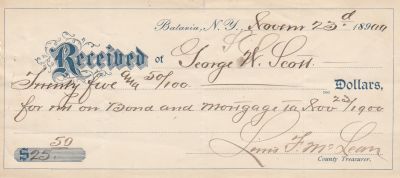 Batavia, N.Y., Novem 23d 1900
Received of George W. Scott
Twenty five and 50/100 Dollars,
for int on Bond and Mortgage to Nov 23/1900
$25.50 Louis F. McLean
County Treasurer.